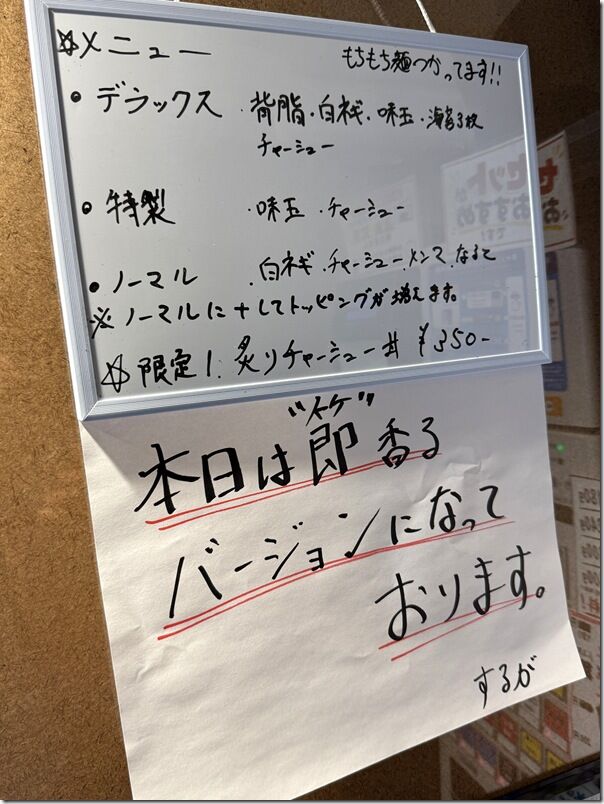 ☆メニュー
もちもち麺つかってます!!
・デラックス ・背脂・白ネギ・味玉・海苔3枚
チャーシュー
・特製 ・味玉・チャーシュー
・ノーマル ・白ネギ・チャーシュー・メンマ・なると
※ノーマルに+してトッピングが増えます。
☆限定1. 炙りチャーシュー丼 ¥350-
本日は"即"香る
バージョンになって
おります。
するが
セット
おすすめ
です!